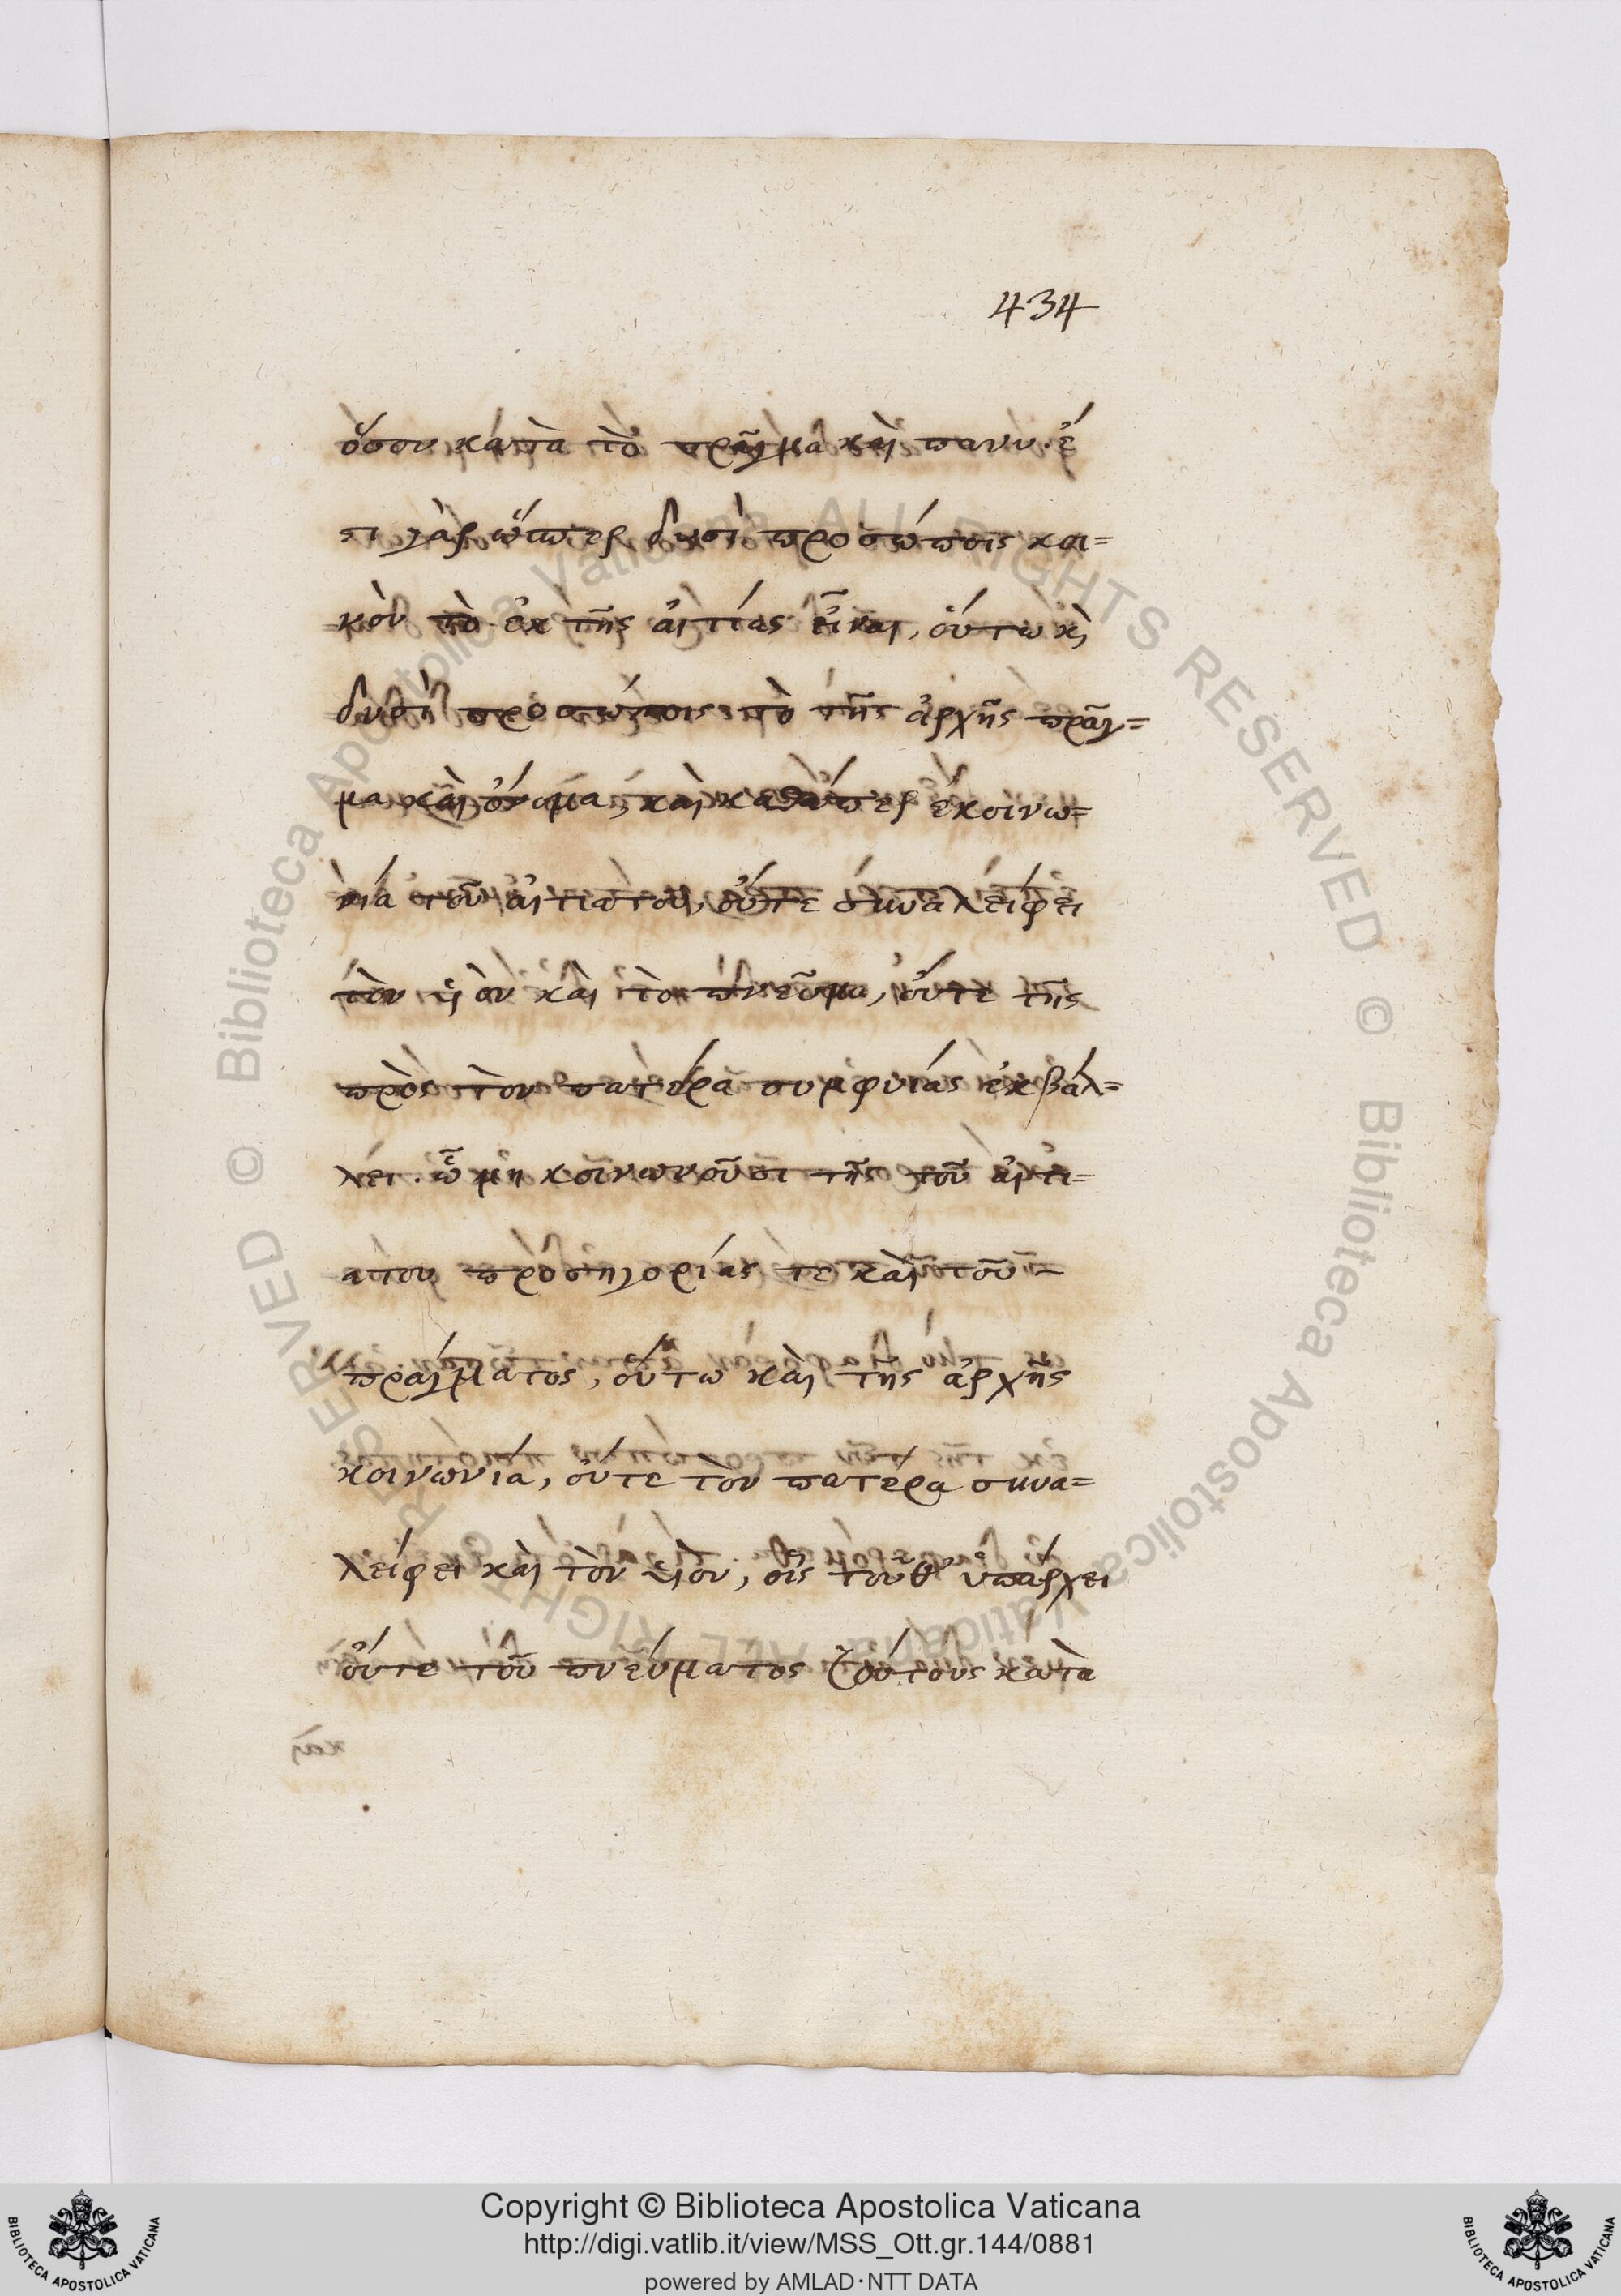 434
ὅσον κατὰ τὸ πρᾶγμα καὶ πανυ. ἔ
τι γὰρ ὥσπερ δυσὶ προσώποις κοι=
νὸν τὸ ἐκ τῆς αἰτίας εἶναι, οὕτω κὶ
δυσὶ προσώποις τὸ τῆς ἀρχῆς πρᾶγ=
μα καὶ ὄνομα, καὶ καθάπερ ἐκοινω=
νία τοῦ αἰτιατοῦ, οὔτε συναλείφει
τὸν υἱὸν καὶ τὸ πνεῦμα, οὔτε τῆς
πρὸς τὸν πατέρα συμφυίας ἐκβάλ=
λει. ᾧ μὴ κοινωνοῦσι τῆς τοῦ αἰτι=
ατοῦ προσηγορίας τε καὶ τοῦ
πράγματος, οὕτω καὶ τῆς ἀρχῆς
κοινωνία, οὔτε τὸν πατέρα συνα=
λείφει καὶ τὸν υἱὸν, οἷς τοῦθ' ὑπάρχει
οὔτε τοῦ πνεύματος τούτους κατὰ
Copyright © Biblioteca Apostolica Vaticana
http://digi.vatlib.it/view/MSS_Ott.gr.144/0881
powered by AMLAD·NTT DATA
BIBLIOTECA APOSTOLICA VATICANA
BIBLIOTECA APOSTOLICA VATICANA
© Biblioteca Apostolica Vaticana ALL RIGHTS RESERVED
© Biblioteca Apostolica Vaticana ALL RIGHTS RESERVED